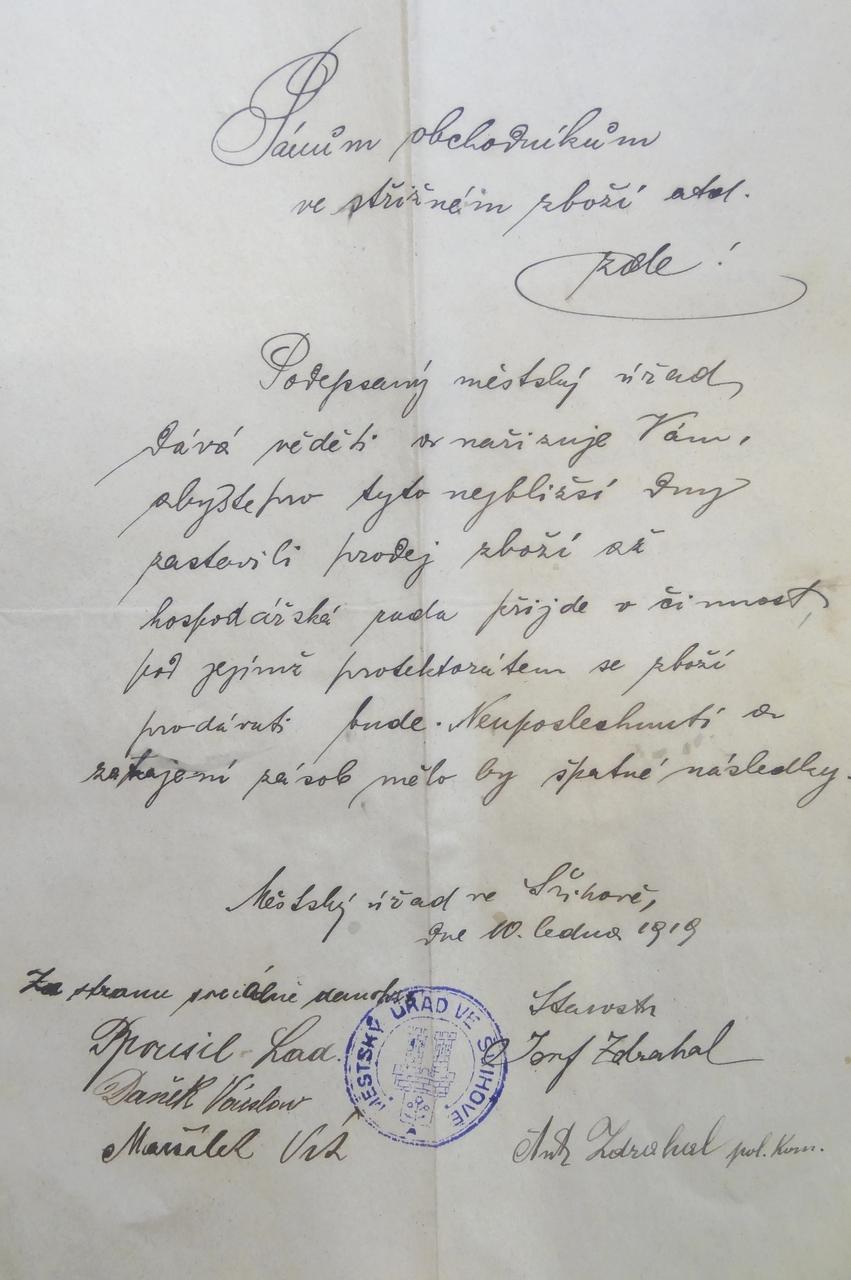 Pánům obchodníkům
ve střižném zboží atd.
zde!
Podepsaný městský úřad
dává věděti a nařizuje Vám,
abyste pro tyto nejbližší dny
zastavili prodej zboží až
hospodářská rada přijde v činnost,
pod jejímž protektorátem se zboží
prodávati bude. Neuposlechnutí a
zatajení zásob mělo by špatné následky.
Městský úřad ve Švihově,
dne 10. ledna 1919
Za stranu sociálně demokr.
Starosta
MĚSTSKÝ ÚŘAD VE ŠVIHOVĚ
Ppousil Lad.
Josef Zdrahal
Daněk Václav
Maršálek Vít
Ant Zdrahal pol. kom.